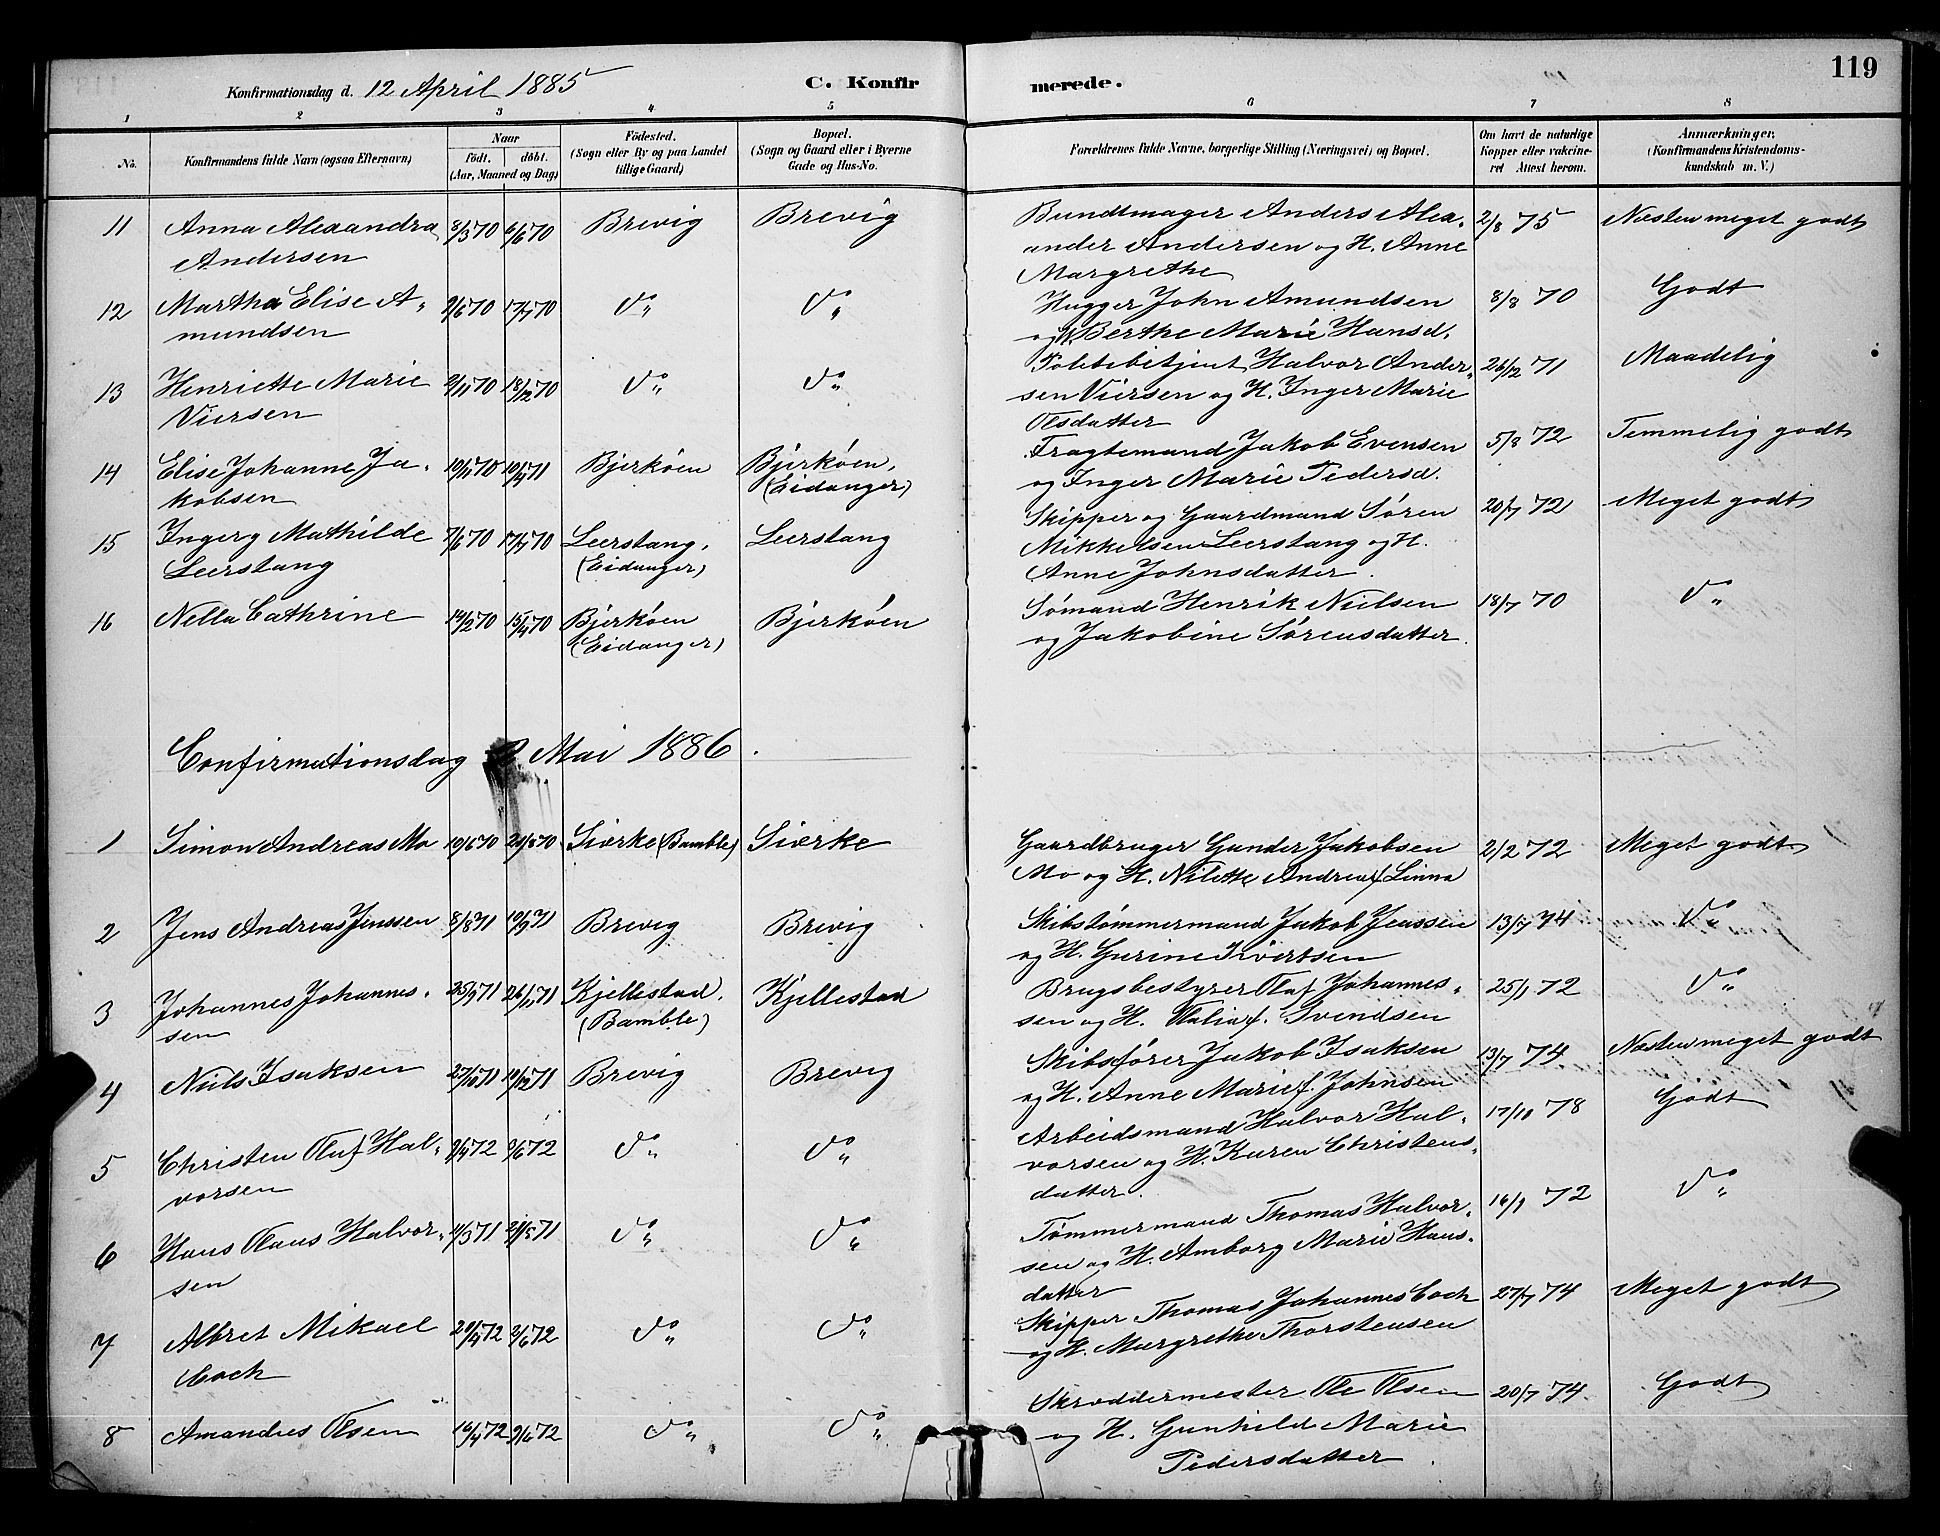 119
Konfirmationsdag d. 12 April 1885
C. Konfirmerede.
1 2 3 4 5 6 7 8
No.
Konfirmandens fulde Navn (ogsaa Efternavn)
Naar
født. døbt.
(Aar, Maaned og Dag)
Födested.
(Sogn eller By og paa Landet
tillige Gaard)
Bopæl.
(Sogn og Gaard eller i Byerne
Gade og Hus-No.
Forældrenes fulde Navne, borgerlige Stilling (Næringsvei) og Bopæl.
Om havt de naturlige
Kopper eller vakcine-
ret Attest herom.
Anmærkninger.
(Konfirmandens Kristendoms-
kundskab m. V.)
11 Anna Alexandra 8/3 70 6/6 70 Brevig Brevig Bundtmager Anders Alex- 2/8 75 Næsten meget godt
Andersen ander Andersen og H. Anne
Margrethe
12 Martha Elise A- 9/6 70 17/7 70 do do Hugger John Amundsen 8/8 70 Godt
mundsen og H. Berthe Marie Hansd.
13 Henriette Marie 2/11 70 18/12 70 do do Toldbetjent Halvor Ander- 26/12 71 Maadelig
Viersen sen Viersen og H. Inger Marie
Olsdatter
14 Elise Johanne Ja- 10/11 70 10/4 71 Bjerköen Bjerköen, Fragtemand Jakob Evensen 5/8 72 Temmelig godt
kobsen (Eidanger) og Inger Marie Pedersd.
15 Ingerg Mathilde 7/6 70 17/7 70 Leerstang, Leerstang Skipper og Gaardmand Sören 20/7 72 Meget godt
Leerstang (Eidanger) Mikkelsen Leerstang og H.
Anne Johnsdatter.
16 Nella Cathrine 14/2 70 15/4 70 Bjerköen Bjerköen Sömand Henrik Nielsen 18/7 70 do
(Eidanger) og Jakobine Sörensdatter.
Confirmationsdag 2 Mai 1886.
1 Simon Andreas Mo 10/6 70 21/8 70 (Bamble) Gaardbruger Gunder Jakobsen 2/2 72 Meget godt
Mo og H. Nilette Andrea f. Linna
2 Jens Andreas Jenssen 8/8 71 10/9 71 Brevig Brevig Skibstömmermand Jakob Jenssen 13/7 74 do
og H. Gurine
3 Johannes Johannes- 25/9 71 26/11 71 Kjellestad, Kjellestad Brugsbestyrer Olaf Johannes- 25/1 72 do
sen (Bamble) sen og H. Olalia f. Svendsen
4 Niels Isaksen 27/10 71 10/12 71 Brevig Brevig Skibsförer Jakob Isaksen 13/7 74 Næsten meget godt
og H. Anne Marie f. Johnsen
5 Christen Olaf Hal- 9/4 72 2/6 72 do do Arbeidsmand Halvor Hal- 17/10 78 Godt
vorsen vorsen og H. Karen Christens-
datter.
6 Hans Olaus Halvor- 4/3 71 21/5 71 do do Tømmermand Thomas Halvor- 16/1 72 do
sen sen og H. Amborg Marie Hans-
datter
7 Albret Mikael 29/4 72 2/6 72 do do Skipper Thomas Johannes Cock 27/7 74 Meget godt
Cock og H. Margrethe Thorstensen
8 Amandus Olsen 16/4 72 9/6 72 do do Skræddermester Ole Olsen 20/7 74 Godt
og H. Gunhild Marie
Pedersdatter.